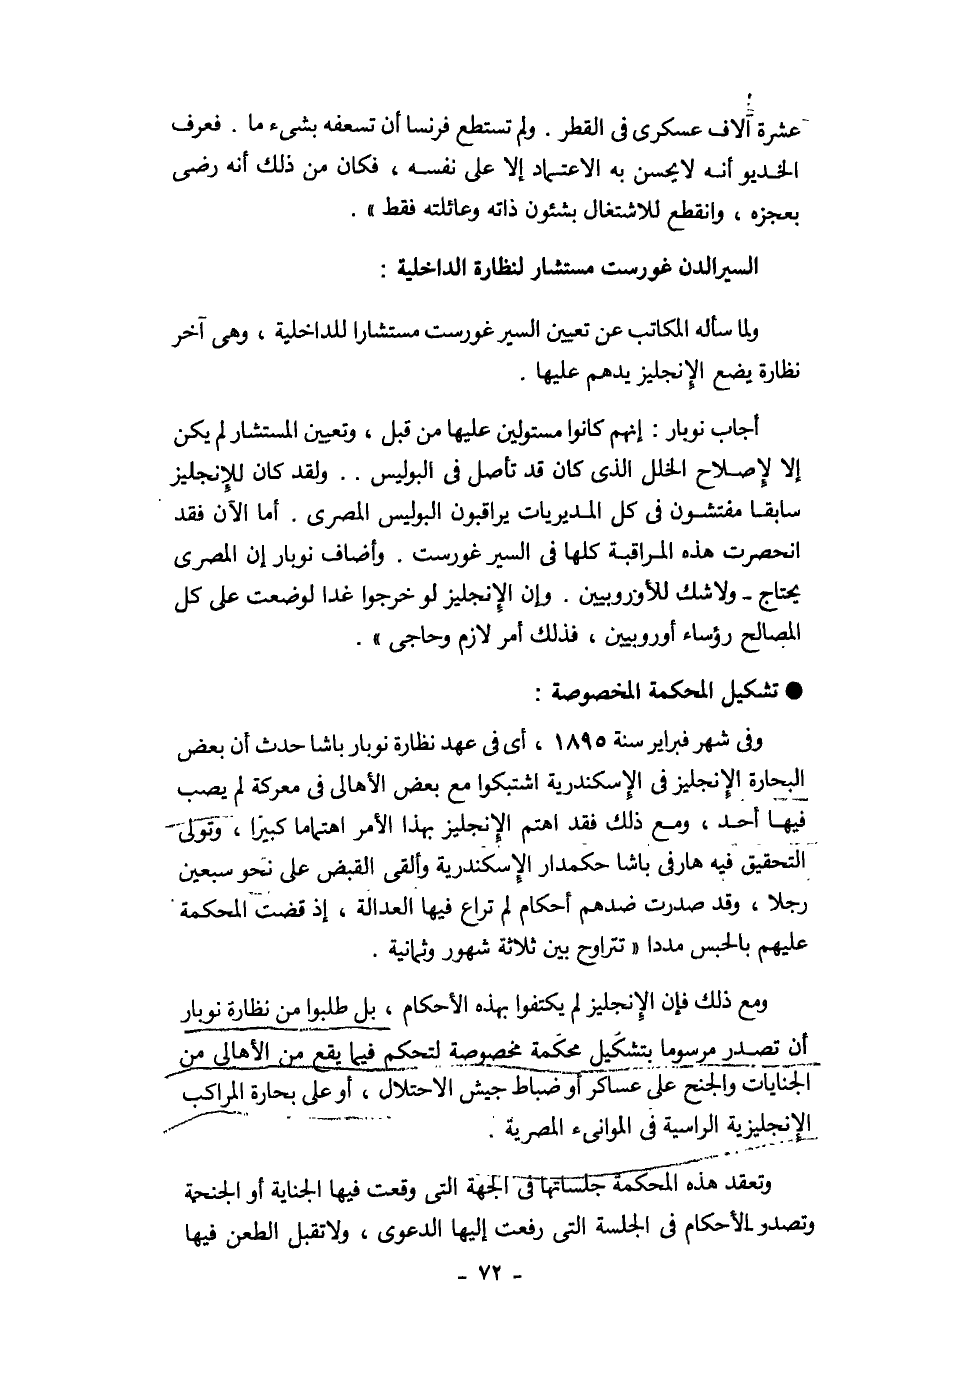 عشرة آلاف عسكرى فى القطر . ولم تستطع فرنسا أن تسعفه بشىء ما . فعرف
الخديو أنه لايحسن به الاعتماد إلا على نفسه ، فكان من ذلك أنه رضى
بعجزه ، وانقطع للاشتغال بشئون ذاته وعائلته فقط » .
السيرالدن غورست مستشار لنظارة الداخلية :
ولما سأله المكاتب عن تعيين السير غورست مستشارا للداخلية ، وهى آخر
نظارة يضع الإنجليز يدهم عليها .
أجاب نوبار : إنهم كانوا مسئولين عليها من قبل ، وتعيين المستشار لم يكن
إلا لإصلاح الخلل الذى كان قد تأصل فى البوليس . . ولقد كان للإنجليز
سابقا مفتشون فى كل المديريات يراقبون البوليس المصرى . أما الآن فقد
انحصرت هذه المراقبة كلها فى السير غورست . وأضاف نوبار إن المصرى
يحتاج ـ ولاشك للأوروبيين . وإن الإنجليز لو خرجوا غدا لوضعت على كل
المصالح رؤساء أوروبيين ، فذلك أمر لازم وحاجى » .
● تشكيل المحكمة المخصوصة :
وفى شهر فبراير سنة ١٨٩٥ ، أى فى عهد نظارة نوبار باشا حدث أن بعض
البحارة الإنجليز فى الإسكندرية اشتبكوا مع بعض الأهالى فى معركة لم يصب
فيها أحد ، ومع ذلك فقد اهتم الإنجليز بهذا الأمر اهتماما كبيرا ، وتولى
التحقيق فيه هارفى باشا حكمدار الإسكندرية وألقى القبض على نحو سبعين
رجلا ، وقد صدرت ضدهم أحكام لم تراع فيها العدالة ، إذ قضت المحكمة
عليهم بالحبس مددا « تتراوح بين ثلاثة شهور وثمانية .
ومع ذلك فإن الإنجليز لم يكتفوا بهذه الأحكام ، بل طلبوا من نظارة نوبار
أن تصدر مرسوما بتشكيل محكمة مخصوصة لتحكم فيما يقع من الأهالى من
الجنايات والجنح على عساكر أو ضباط جيش الاحتلال ، أو على بحارة المراكب
الإنجليزية الراسية فى الموانىء المصرية .
وتعقد هذه المحكمة جلساتها فى الجهة التى وقعت فيها الجناية أو الجنحة
وتصدر الأحكام فى الجلسة التى رفعت إليها الدعوى ، ولاتقبل الطعن فيها
- ٧٢ -